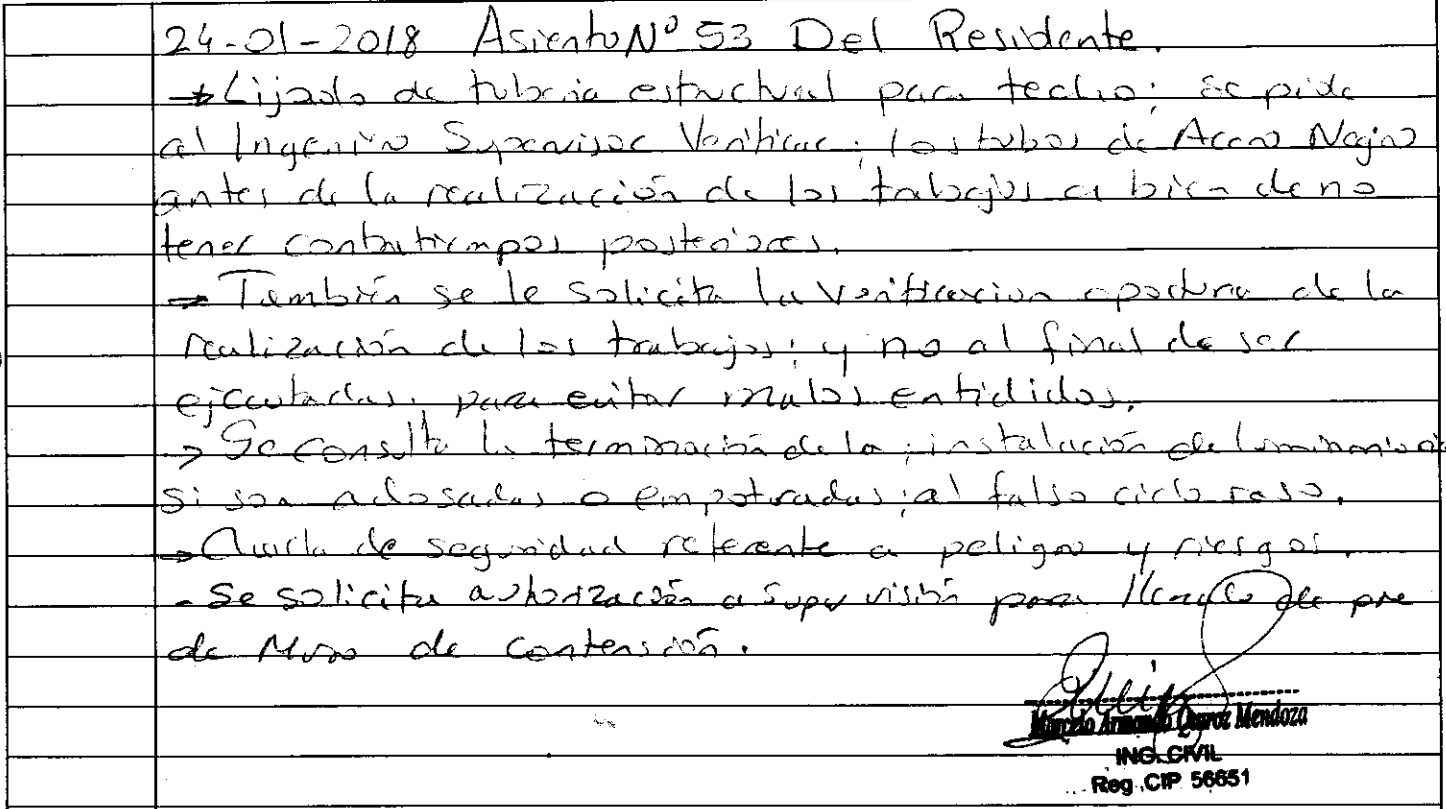 24-01-2018 Asiento Nº 53 Del Residente.
→ Lijado de tuberia estructural para techo; se pide
al Ingeniero Supervisor Verificar; los tubos de Acero Negro
antes de la realización de los trabajos a bien de no
tener contratiempos posteriores.
→ También se le solicita la verificacion oportuna de la
realización de los trabajos; y no al final de ser
ejecutadas, para evitar malos entididos.
→ Se consulta la terminación de la; instalación de
si son adosadas o empotradas; al falso cielo raso.
→ Charla de seguridad referente a peligro y riesgos.
- Se solicita autorización a Supervisión para de
de Muro de Contensión.
Marcelo Armando Quiroz Mendoza
ING. CIVIL
Reg. CIP 56651